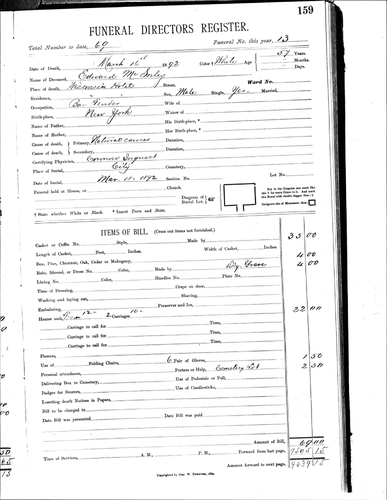 159
FUNERAL DIRECTORS REGISTER.
Total Number to date, 69 Funeral No. this year, 13
Date of Death, March 16th 1892 Color † White Age 57 Years. Months. Days.
Name of Deceased, Edward
Place of death, Street, Ward No.
Residence, Sex, Male Single, Yes. Married,
Occupation, Bar Tender Wife of
Birthplace, New York Widow of
Name of Father, His Birthplace, *
Name of Mother, Her Birthplace, *
Cause of death, Primary, Natural causes Duration,
Cause of death, Secondary, Duration,
Certifying Physician, Coroners Inquest
Place of burial, City Cemetery,
Date of burial, Mar. 1892 Section No. Lot No.
Funeral held at House, or Church.
Diagram of Burial Lot.
† State whether White or Black. * Insert Town and State.
ITEMS OF BILL. (Cross out items not furnished.)
Casket or Coffin No. Style, Made by 35 00
Length of Casket, Feet, Inches. Width of Casket, Inches.
Box, Pine, Chestnut, Oak, Cedar or Mahogany, 4 00
Robe, Shroud, or Dress No. Color, Made by Dig Grave 4 00
Lining No. Color, Handles No. Plate No.
Time of Dressing, Crape on door,
Washing and laying out, Shaving,
Embalming, Preserver and Ice,
Hearse and 12- 2 Carriages 10- 22 00
Carriage to call for Time,
Carriage to call for Time,
Carriage to call for Time,
Carriage to call for Time,
Flowers,
Use of Folding Chairs, 6 Pair of Gloves, 1 50
Personal attendance, Porters or Help, Cemetery Lot 2 50
Delivering Box to Cemetery, Use of Pedestals or Pall,
Badges for Bearers, Use of Candlesticks,
Inserting death Notices in Papers,
Bill to be charged to
Date Bill was presented Date Bill was paid
Amount of Bill, 69 00
Time of Services, A. M., P. M., Forward from last page,
Amount forward to next page,